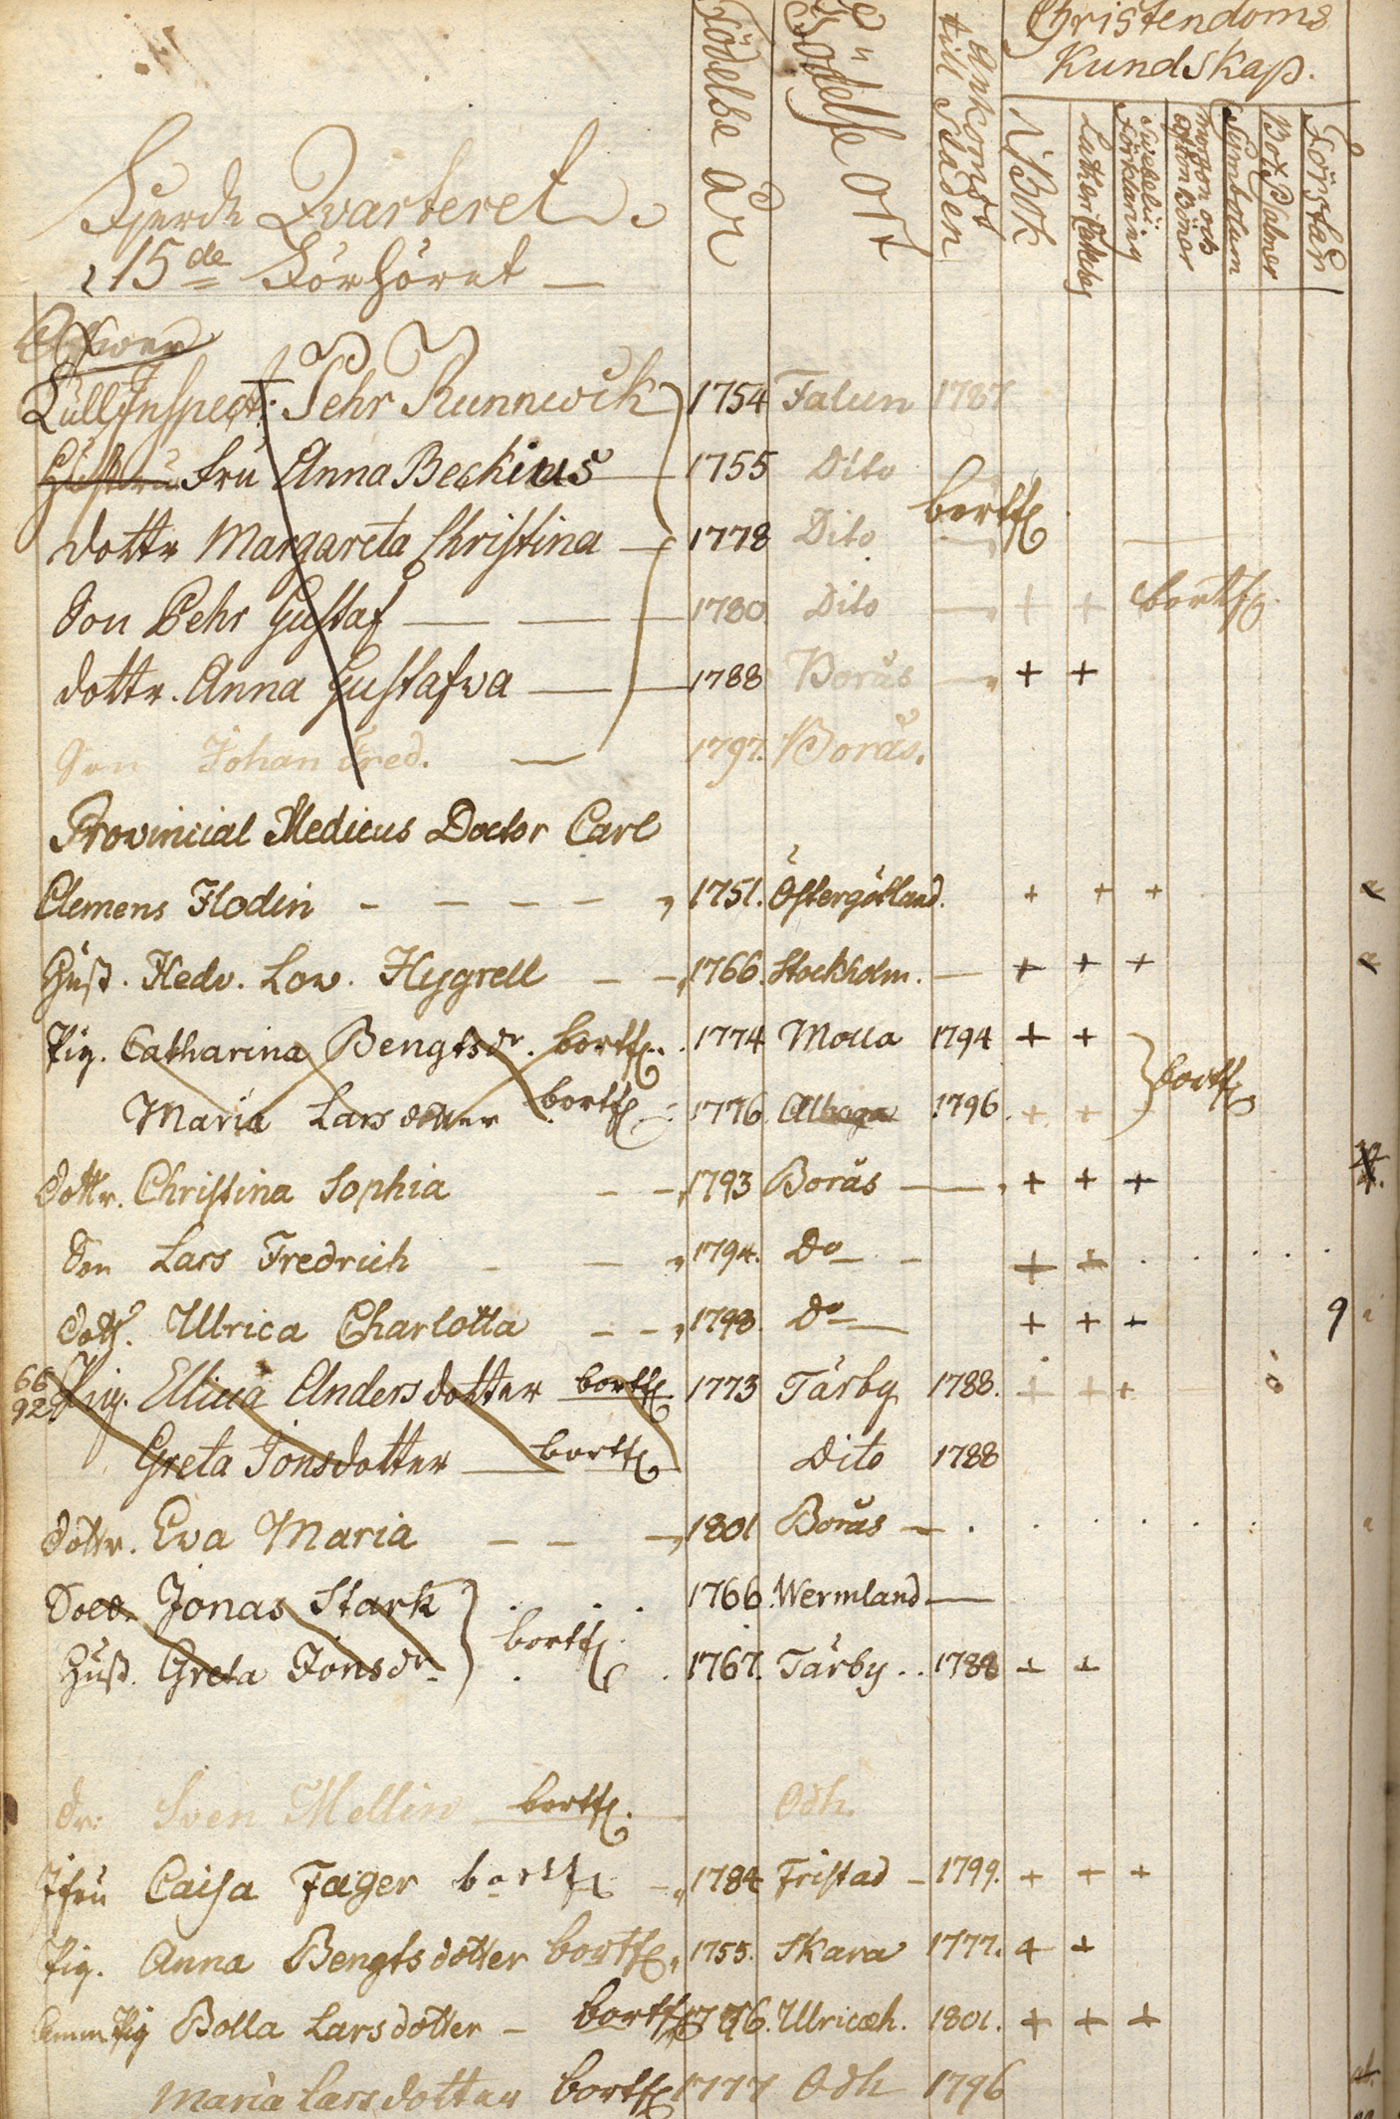 Födelse år
Födelse ort
Ankomst till Staden
Christendoms
Kundskap.
i Bok
Luther Cateches
Svebelii Förklaring
morgon och afton Böner
Symbolum
Bot Psalmer
Förstår
Fjerde Qvarteret
15de Förhöret —
TullInspect: Pehr Runnwik 1754 Falun 1787
Hustru Fru Anna Beckius 1755 Dito
bortfl
dottr Margareta Christina — 1778 Dito —
Son Pehr Gustaf — — — 1780 Dito — + + bortfl.
dottr. Anna Gustafva — — 1788 Borås — + +
Son Johan Fred. — 1797. Borås.
Provincial Medicus Doctor Carl
Clemens Flodin - - - - - 1751. Östergötland. + + +
Hust. Hedv. Lov. Hygrell - - 1766. Stockholm. — + + +
Pig. Catharina Bengtsdr. bortfl. 1774 Molla 1794 + + bortfl
Maria Larsdotter bortfl - 1776 1796. + +
dottr. Christina Sophia - - 1793 Borås — + + +
Son Lars Fredrich - - 1794. Do - + +
dott. Ulrica Charlotta - - 1798. Do — + + + 9
66 92 Pig. Ellica Andersdotter bortfl. 1773 Tärby 1788. + + +
Greta Jonsdotter — bortfl Dito 1788
dottr. Eva Maria - - - 1801 Borås —
Jonas Stark 1766. Wermland —
bortfl.
Hust. Greta Jonsdr. 1767. Tärby . . 1788 + +
dr: Sven Mellin bortfl. Odh.
Jfru Caisa Jäger bortfl - 1784 Fristad - 1799. + + +
Pig. Anna Bengtsdotter bortfl, 1755. Skara 1777. + +
Amm Pig Bolla Larsdotter - bortfl 1776. Ulriceh. 1801. + + +
Maria Larsdotter bortfl 1777 Odh 1796